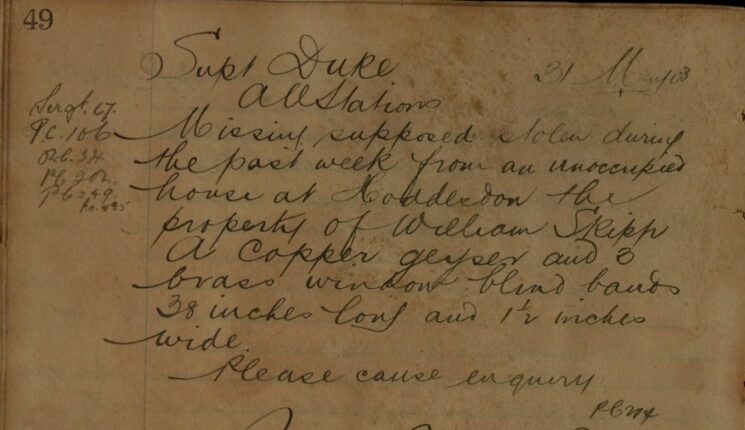 49
Supt Duke
31 May 03
All Stations
Sergt. 67.
Pc. 106
Pc. 34
Pc 202.
Pc 249
Missing supposed stolen during
the past week from an unoccupied
house at Hoddesdon the
property of William Skipp
A copper geyser and 3
brass window blind bands
38 inches long and 1½ inches
wide.
Please cause enquiry